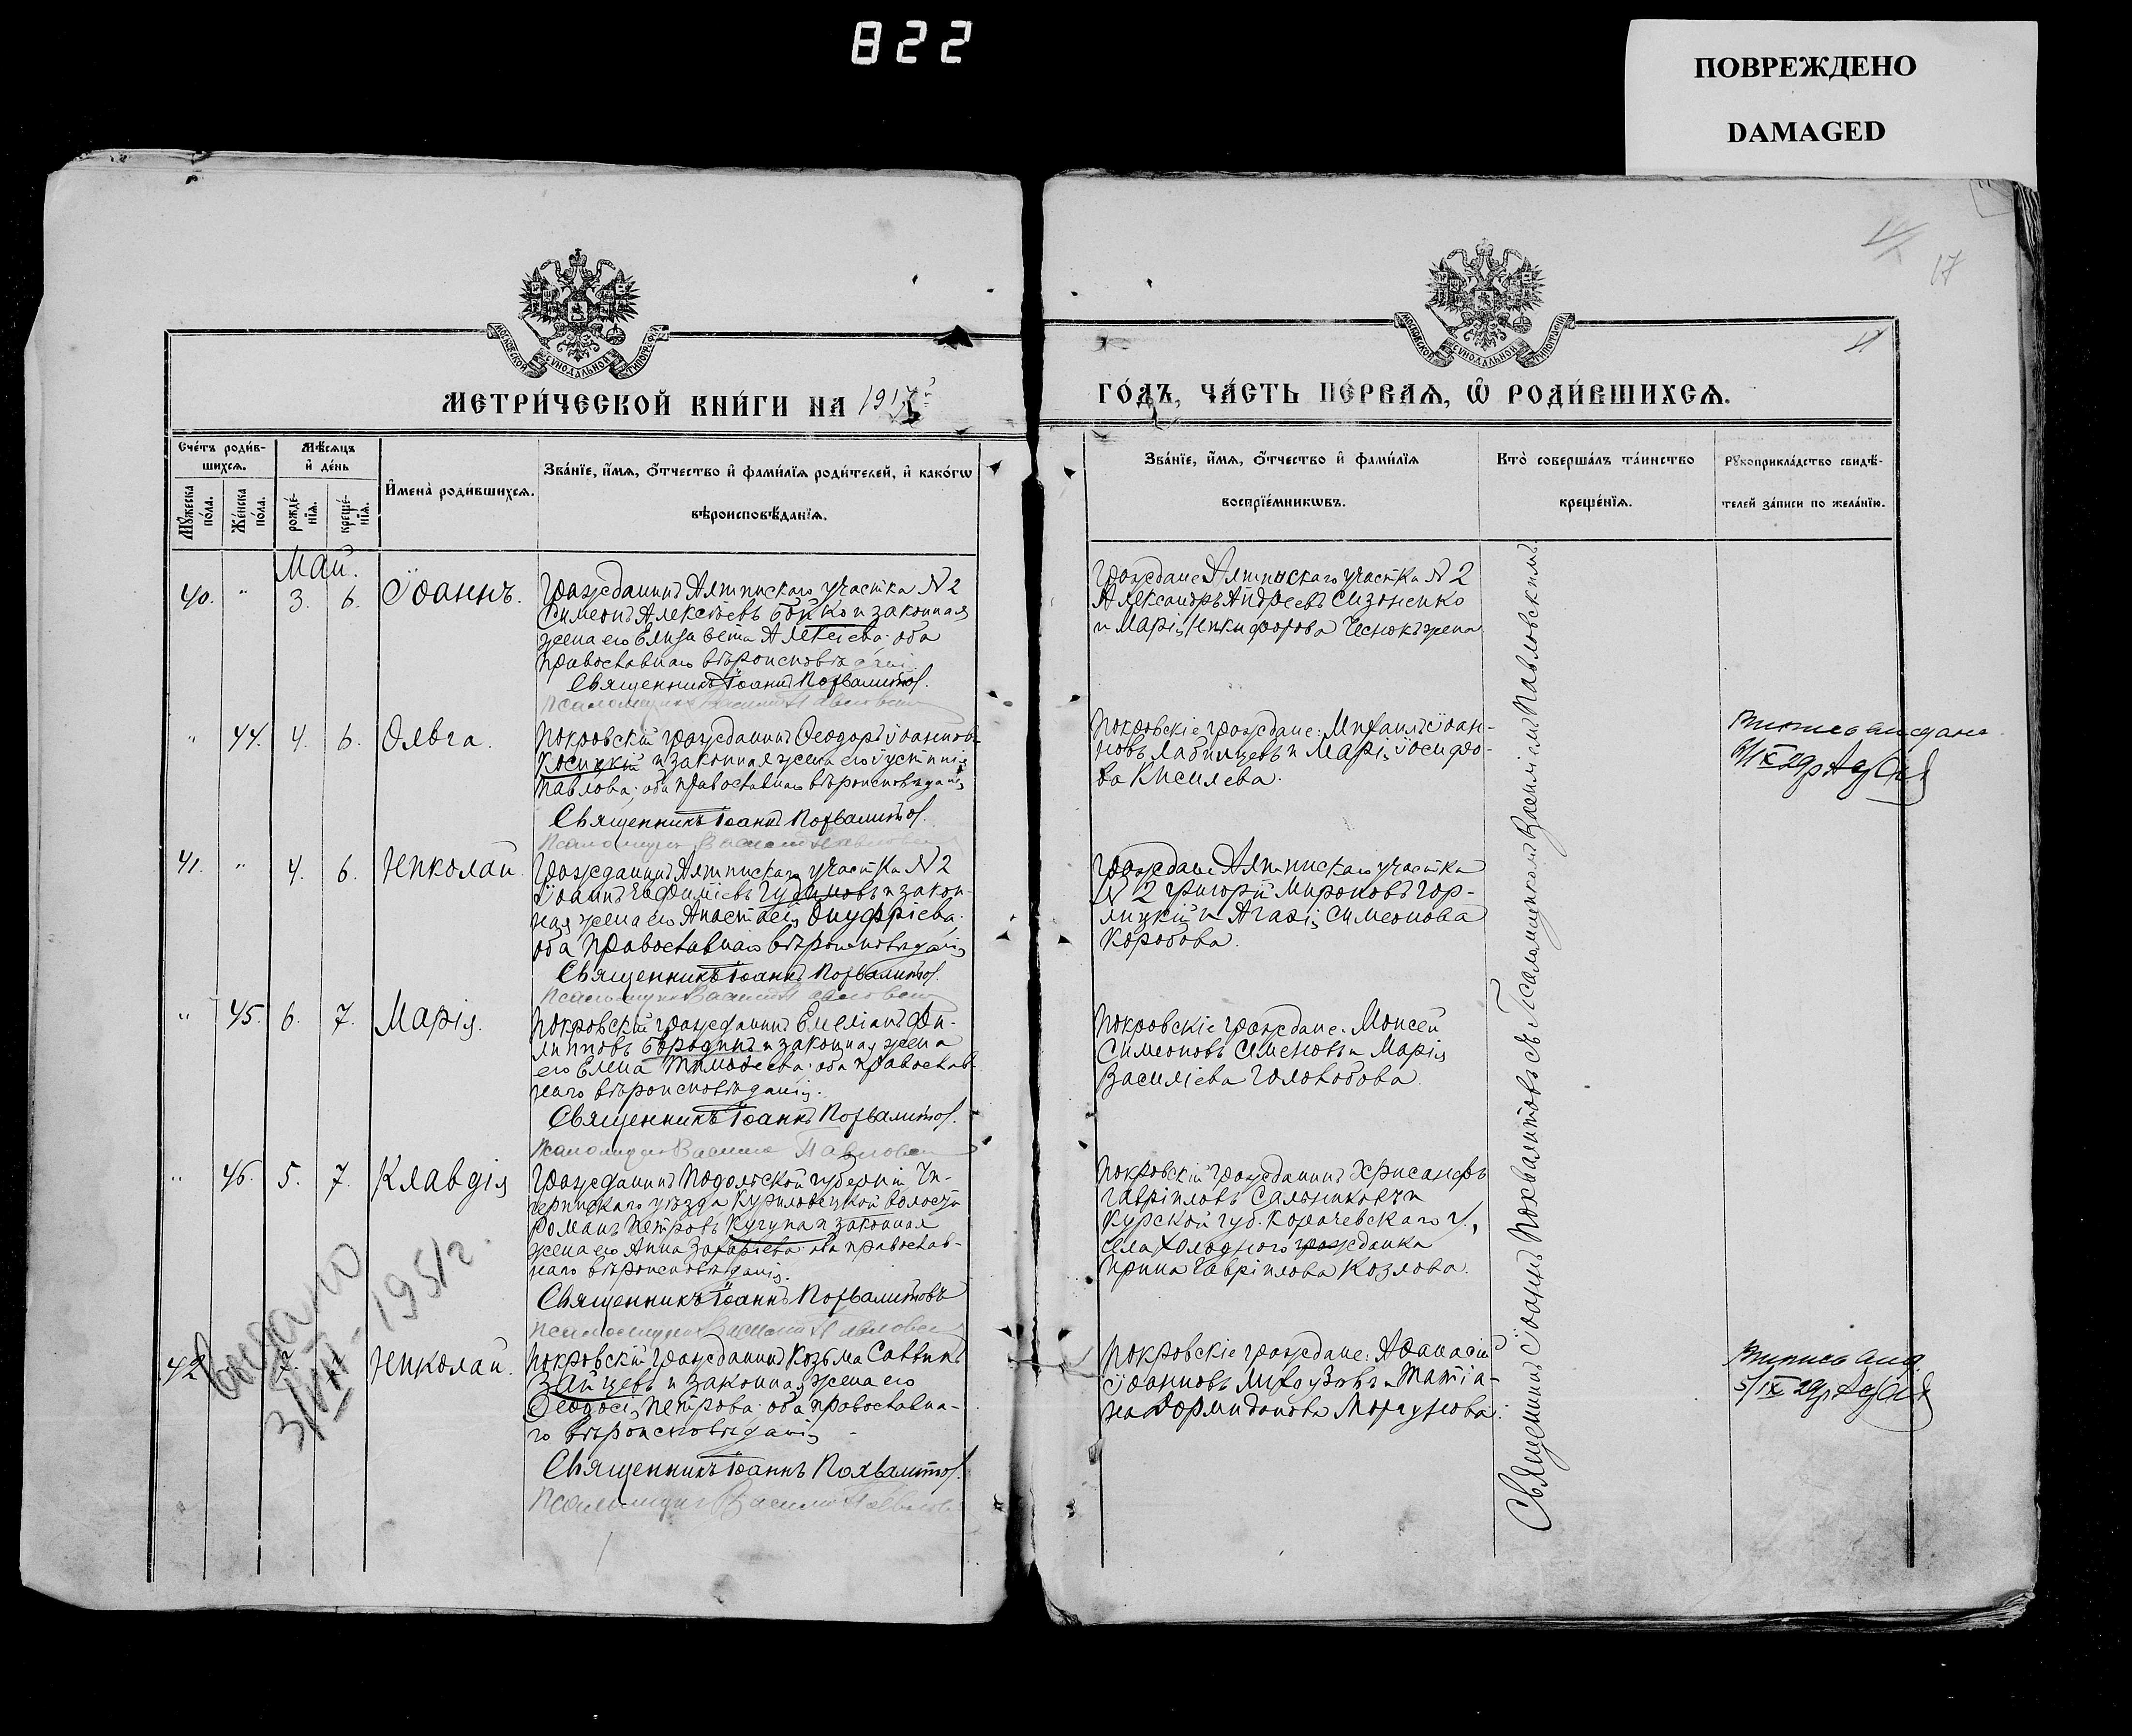 822
ПОВРЕЖДЕНО
DAMAGED
17
МОСКОВСКОЙ СѴНОДАЛЬНОЙ ТИПОГРАФІИ
МОСКОВСКОЙ СѴНОДАЛЬНОЙ ТИПОГРАФІИ
МЕТРИ́ЧЕСКОЙ КНИ́ГИ НА 1917
ГО́ДЪ, ЧА́СТЬ ПЕ́РВАѦ, Ѡ҆ РОДИ́ВШИХСѦ.
Сче́тъ роди́в-
шихсѧ.
Мꙋжеска по́ла.
Же́нска по́ла.
Мѣ́сѧцъ
и҆ де́нь
рожде́-
нїѧ.
креще́-
нїѧ.
И҆мена̀ роди́вшихсѧ.
Зва́нїе, и҆́мѧ, ѻ҆́тчество и҆ фами́лїѧ роди́телей, и҆ како́гѡ
вѣроисповѣ́данїѧ.
Зва́нїе, и҆́мѧ, ѻ҆́тчество и҆ фами́лїѧ
воспрїе́мникѡвъ.
Кто̀ соверша́лъ та́инство
креще́нїѧ.
Рꙋкоприкла́дство свидѣ́-
телей за́писи по жела́нїю.
Май.
40. " 3. 6. Іоаннъ.
Гражданинъ Алтинскаго участка N 2
Симеонъ Алексѣевъ Бойко и законная
жена его Елизавета Алексѣева: оба
православнаго вѣроисповѣданія.
Священникъ Іоаннъ Похвалитов.
Псаломщикъ Василій Павловскій
Граждане Алтинскаго участка N 2
Александръ Андреевъ Сизоненко
и Марія Никифорова Чеснокъ жена
" 44. 4. 6. Ольга.
Покровскій гражданинъ Ѳеодоръ Іоанновъ
Косицкій и законная жена его Іустинія
Павлова; оба православнаго вѣроисповѣданія
Священникъ Іоаннъ Похвалитов.
Псаломщикъ Василій Павловскій
Покровскіе граждане: Михаилъ Іоан-
новъ Лабинцевъ и Марія Іосифо-
ва Киселева.
41. " 4. 6. Николай.
Гражданинъ Алтинскаго участка N 2
Іоаннъ Евфиміевъ Гудимовъ и закон-
ная жена его Анастасія Онуфріева:
оба православнаго вѣроисповѣданія
Священникъ Іоаннъ Похвалитов.
Псаломщикъ Василій Павловскій
Граждане Алтинскаго участка
N 2 Григорій Мироновъ Гор-
лицкій и Агафія Симеонова
Коробова.
" 45. 6. 7. Марія.
Покровскій гражданинъ Емеліанъ Фи-
липповъ Бородинъ и законная жена
его Елена Тимоѳеева: оба православ-
наго вѣроисповѣданія.
Священникъ Іоаннъ Похвалитов.
Псаломщикъ Василій Павловскій
Покровскіе граждане: Моисей
Симеоновъ Семеновъ и Марія
Василіева Головобова.
" 46. 5. 7. Клавдія
Гражданинъ Подольской губерніи Ти-
черинскаго уѣзда Куриловецкой волости
Романъ Петровъ Кугупа и законная
жена его Анна Захаріева: оба православ-
наго вѣроисповѣданія.
Священникъ Іоаннъ Похвалитовъ
Псаломщикъ Василій Павловскій
Покровскій гражданинъ Хрисанфъ
Гавріиловъ Сальниковъ и
Курской губ. Корочевскаго у.,
села Холоднаго гражданка
Ирина Гавріилова Козлова.
42. " 7. Николай.
Покровскій гражданинъ Козьма Саввинъ
Зайцевъ и законная жена его
Ѳеодосія Петрова: оба православна-
го вѣроисповѣданія
Священникъ Іоаннъ Похвалитов.
Псаломщикъ Василій Павловскій
Покровскіе граждане: Аѳанасій
Іоанновъ и Татіа-
на Дормидонова Моргунова.
выдано
3/VII-1951г.
Священникъ Іоаннъ Похвалитовъ съ Псаломщикомъ Василіемъ Павловскимъ.
6/IX 29г
5/IX 29г